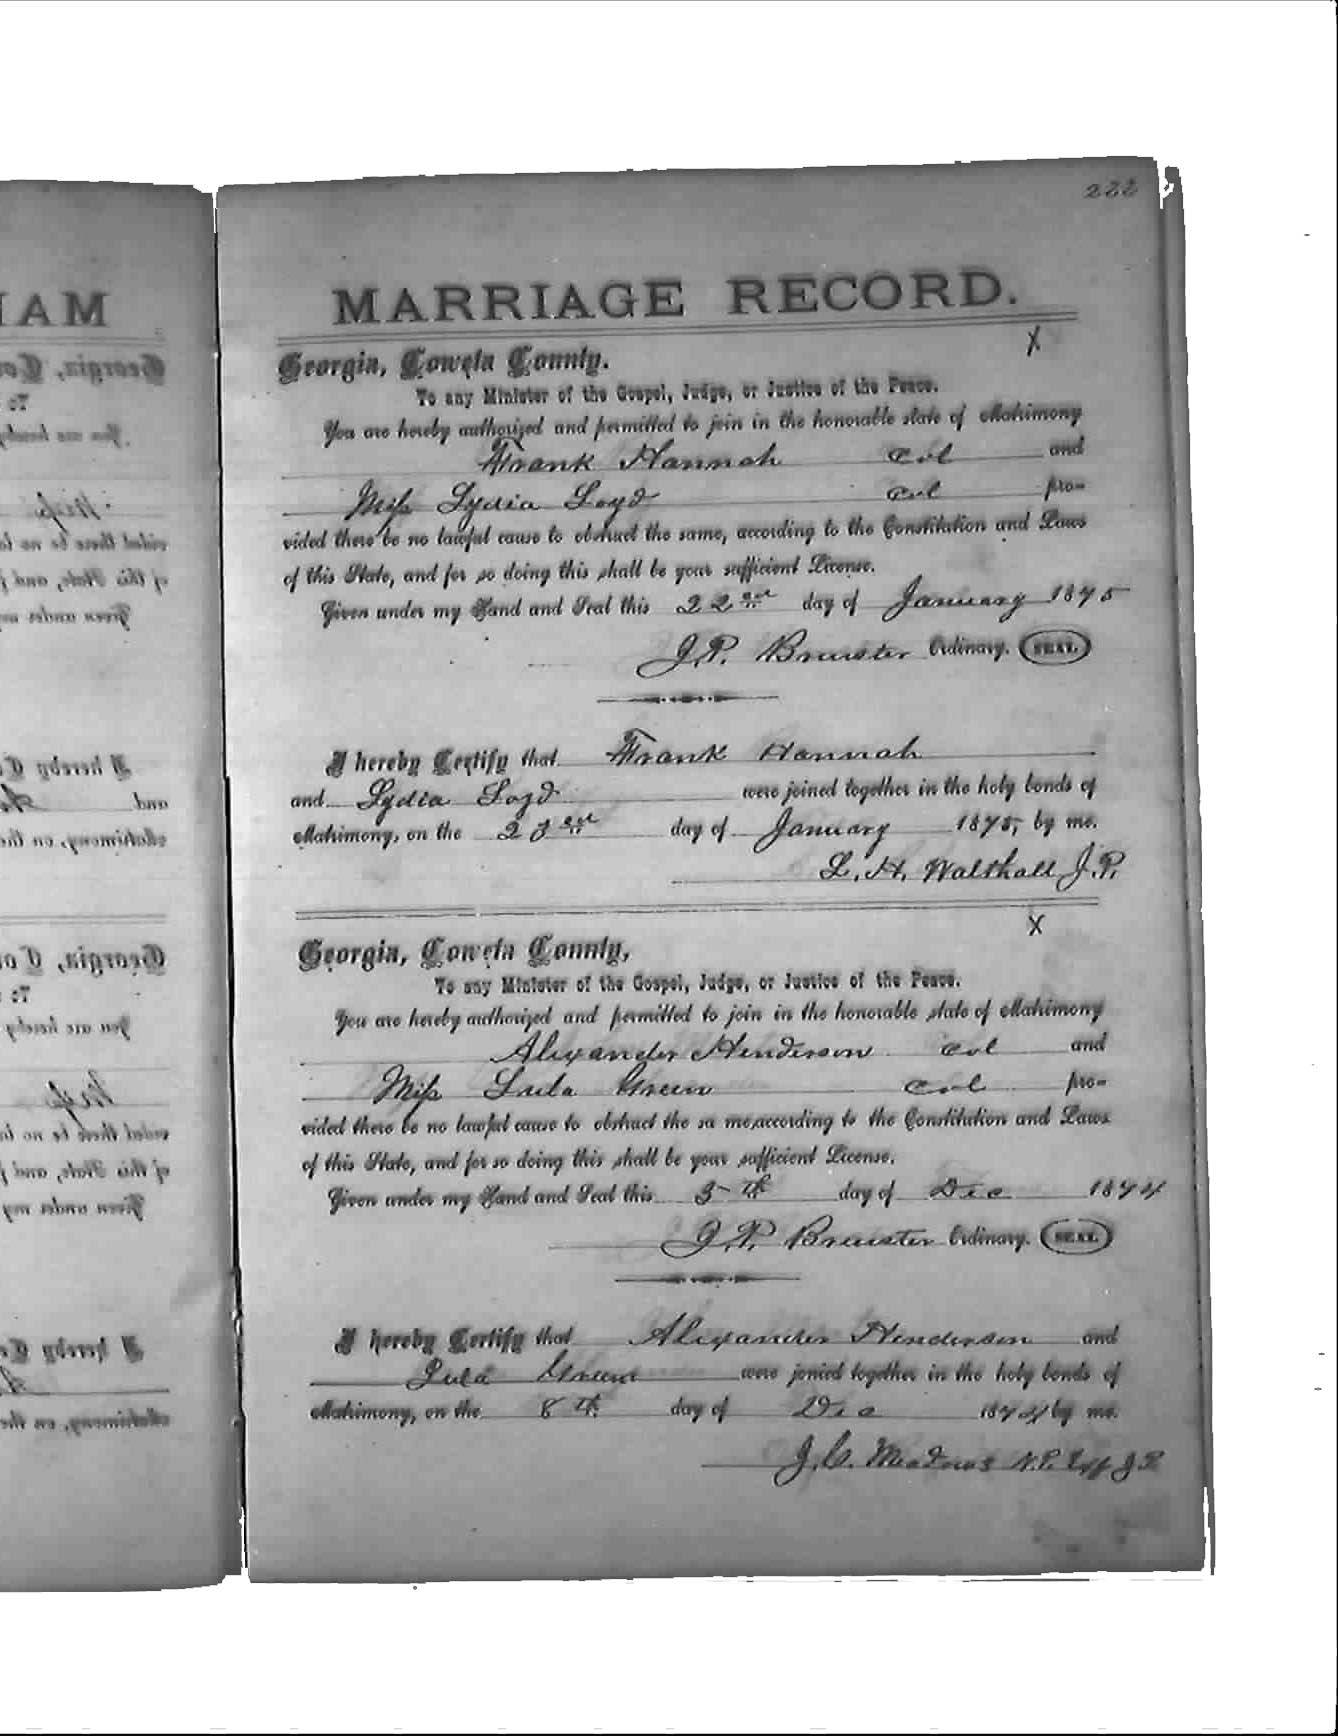 222
MARRIAGE RECORD.
X
Georgia, Coweta County.
To any Minister of the Gospel, Judge, or Justice of the Peace.
You are hereby authorized and permitted to join in the honorable state of Matrimony
Frank Hannah col and
Miss Lydia Loyd col pro-
vided there be no lawful cause to obstruct the same, according to the Constitution and Laws
of this State, and for so doing this shall be your sufficient License.
Given under my Hand and Seal this 22nd day of January 1875
J.P. Brewster Ordinary. SEAL.
I hereby Certify that Frank Hannah
and Lydia Loyd were joined together in the holy bonds of
Matrimony, on the 23rd day of January 1875, by me.
L. H. Walthall J.P.
X
Georgia, Coweta County,
To any Minister of the Gospel, Judge, or Justice of the Peace.
You are hereby authorized and permitted to join in the honorable state of Matrimony
Alexander Henderson col and
Miss Lula Green col pro-
vided there be no lawful cause to obstruct the sa me,according to the Constitution and Laws
of this State, and for so doing this shall be your sufficient License.
Given under my Hand and Seal this 5th day of Dec 1874
J.P. Brewster Ordinary. SEAL.
I hereby Certify that Alexander Henderson and
Lula Green were jonied together in the holy bonds of
Matrimony, on the 8th day of Dec 1874 by me.
J.C. Meadows N.P. Exff J.P.